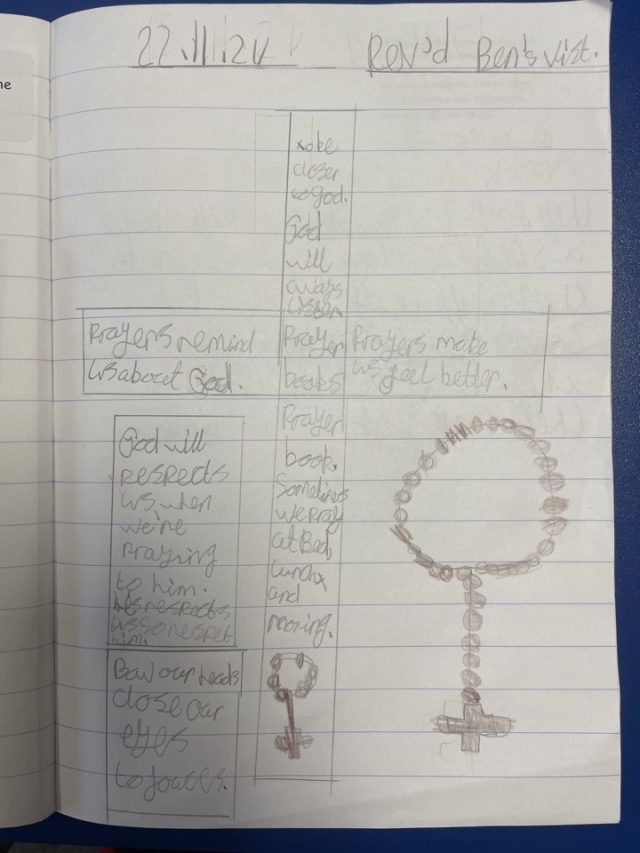 ne
22.11.24 Rev'd Ben's vist.
closer
to god.
God
will
always
listen
Prayers remind
us about God.
Prayer
books
Prayers make
us feel better.
Prayer
book.
Sometimes
we pray
at Bed,
lunch
and
moring.
God will
respects
us when
we're
Praying
to him.
hes respects
us so respet
him.
Bow our heads
close our
eyes
to foucs.